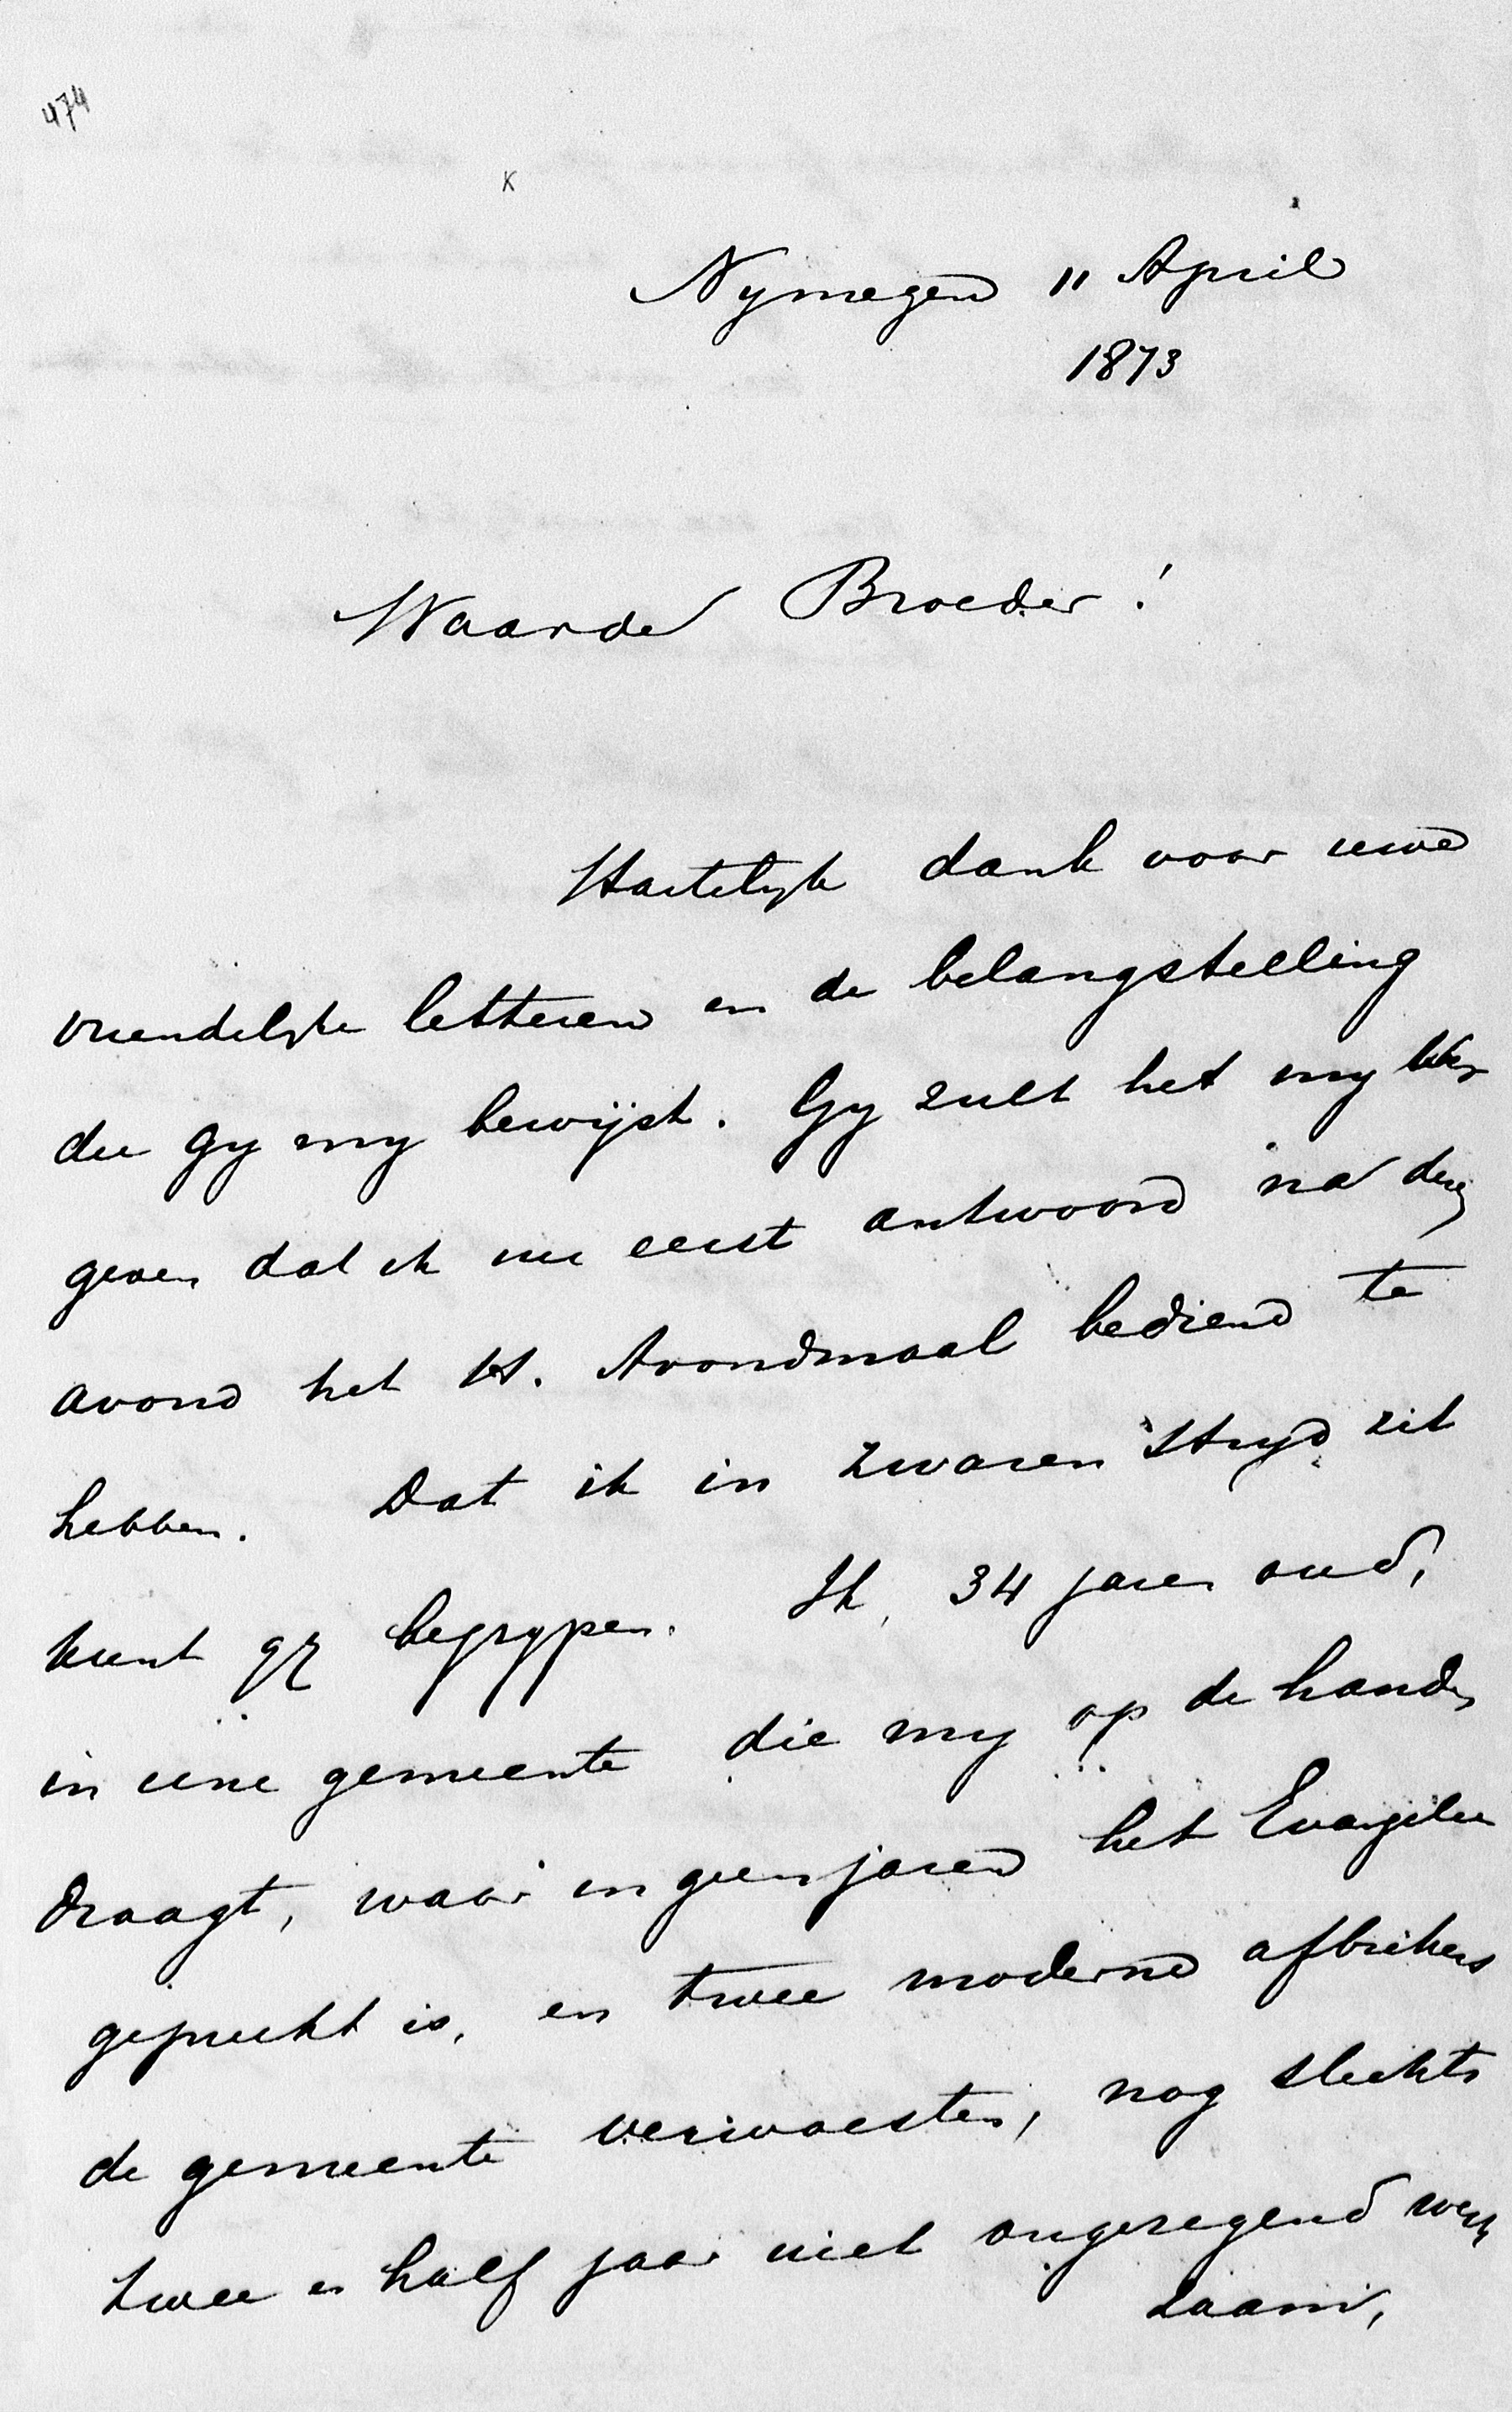 474
K
Nymegen 11 April
1873
Waarde Broeder!
Hartelyk dank voor uwe
vriendelyke letteren en de belangstelling
die gy my bewijst. Gy zult het my
geven dat ik nu eerst antwoord na dezen
avond het H. Avondmaal bediend te
hebben. Dat ik in zwaren stryd zit
kunt gy begrypen. Ik, 34 jaren oud,
in eene gemeente die my op de handen
draagt, waar in geen jaren het Evangelie
gepreekt is, en twee moderne afbrekers
de gemeente verwoesten, nog slechts
twee en half jaar niet ongezegend werk
zaam,